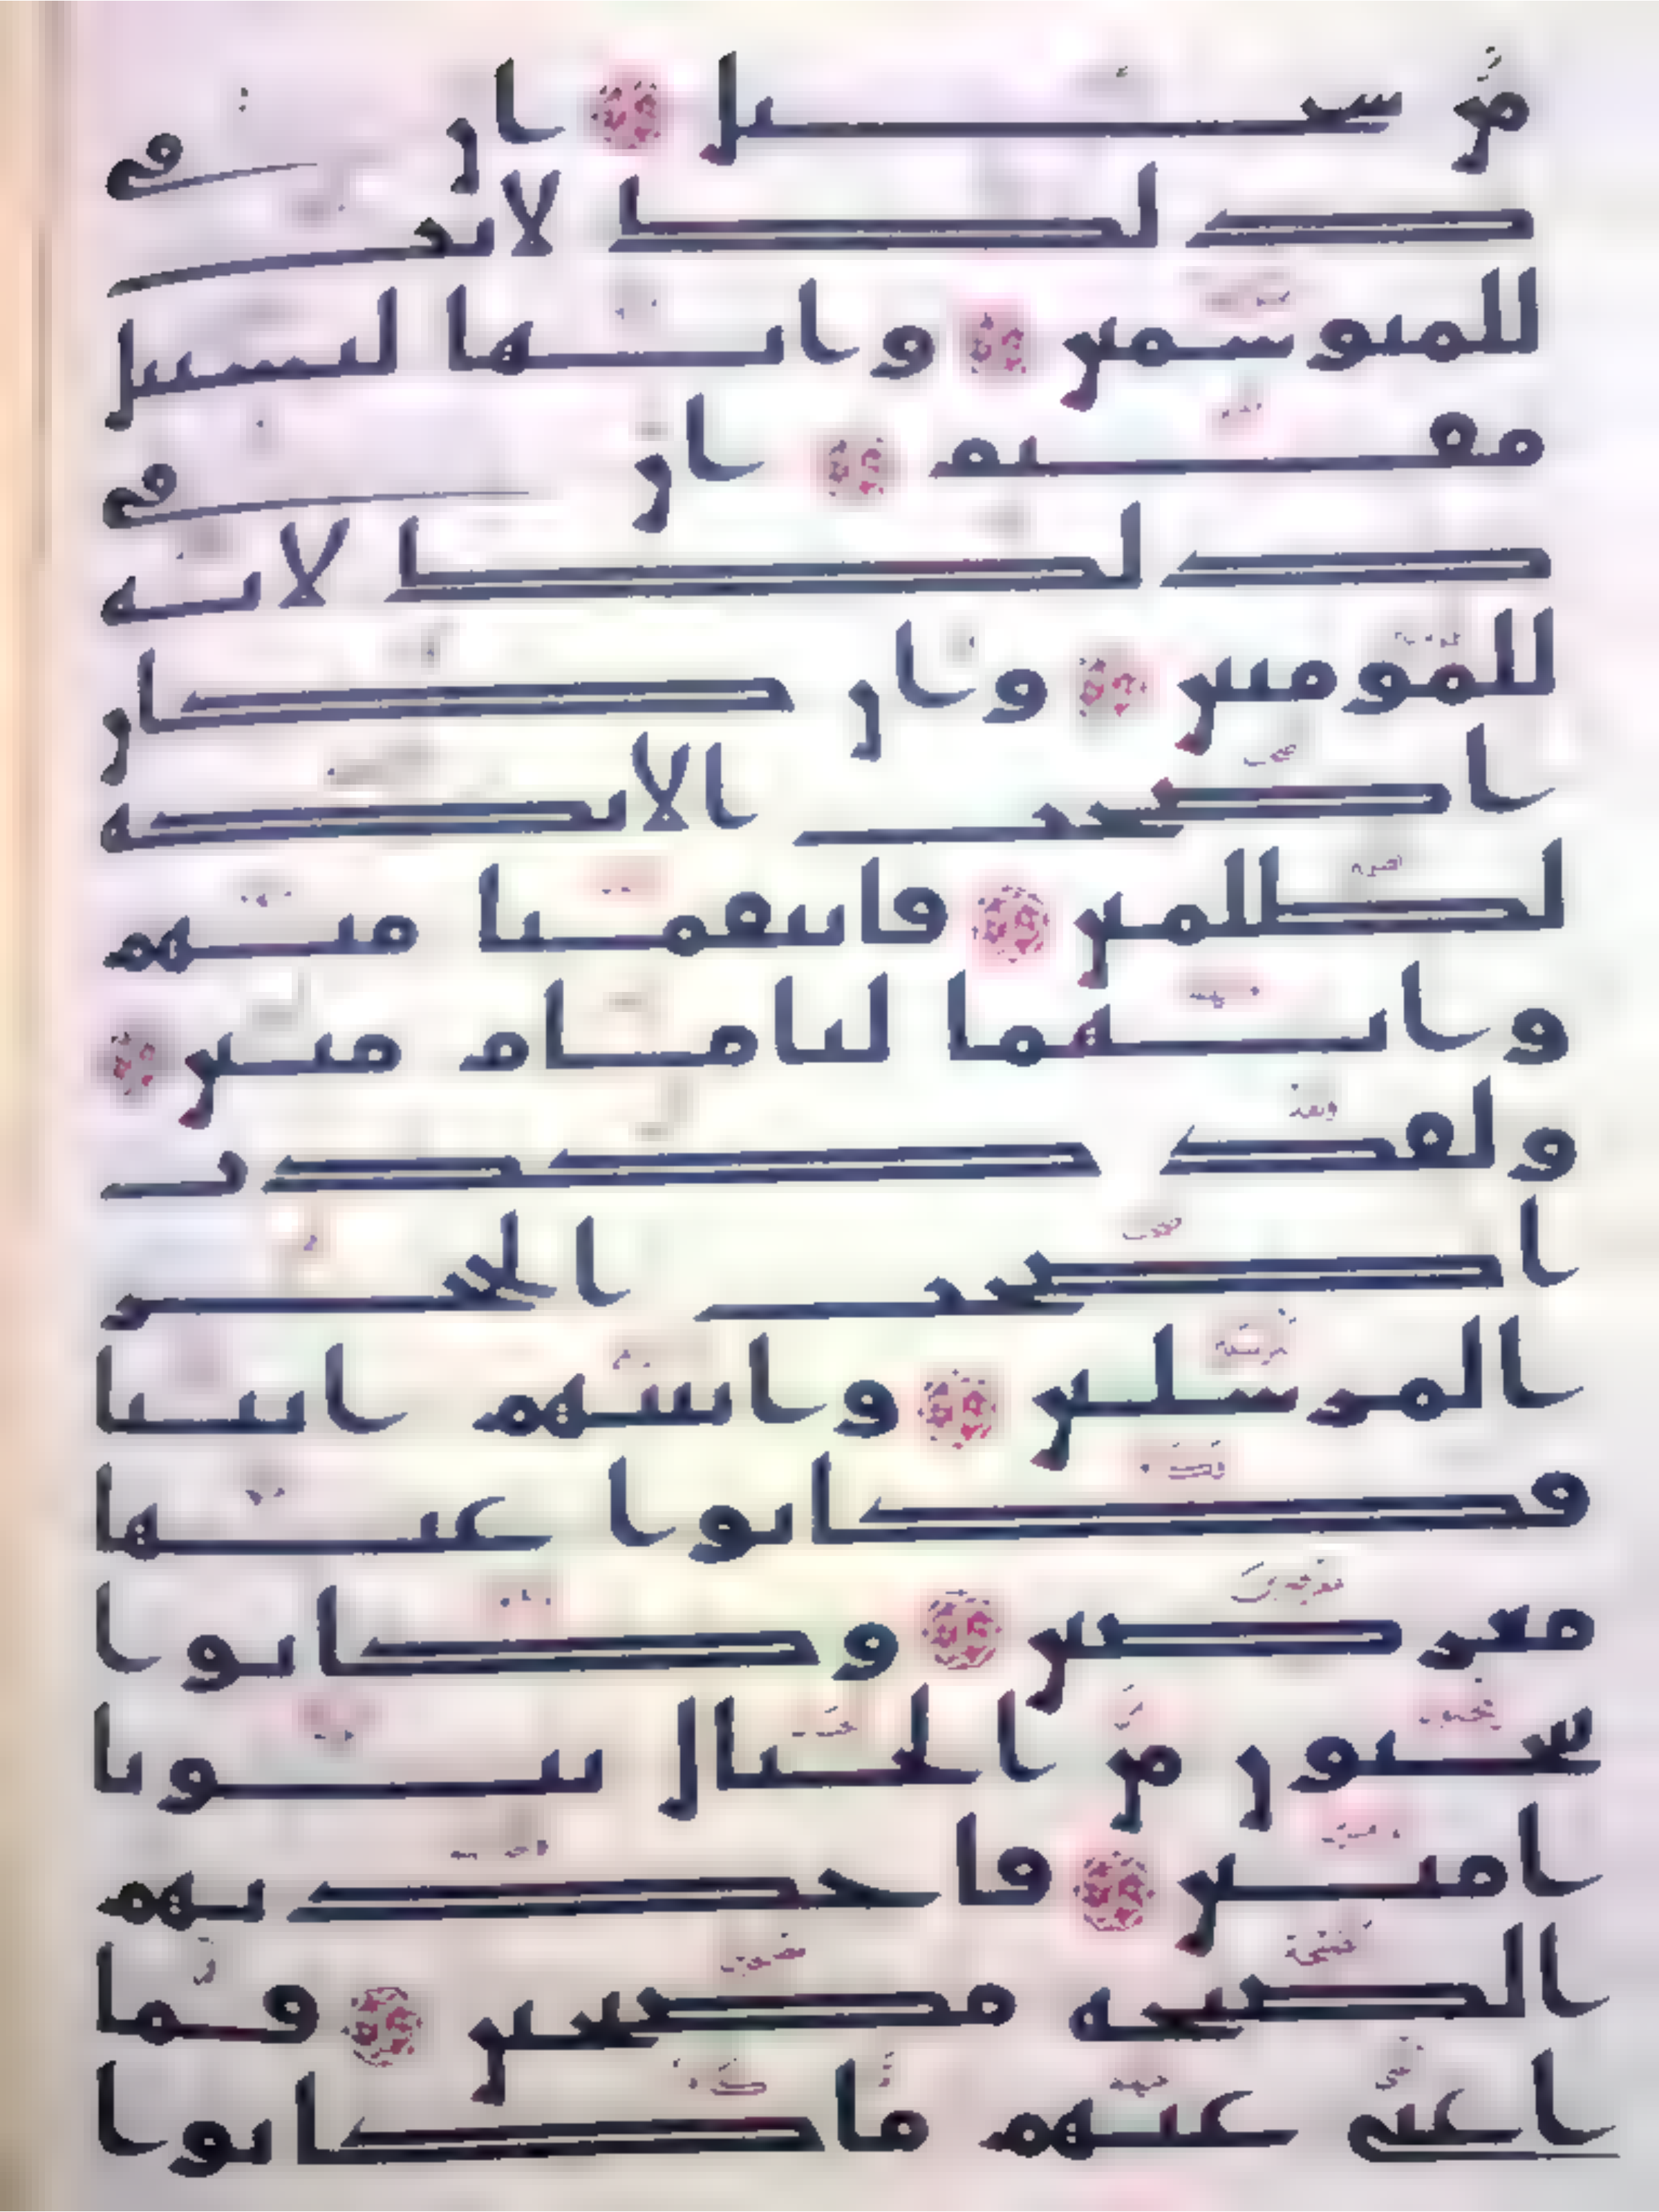 من سجيل ان في
ذلك لايت
للمتوسمين وانها لبسبيل
مقيم ان في
ذلك لاية
للمومنين وان كان
اصحب الايكة
لظلمين فانتقمنا منهم
وانهما لبامام مبين
ولقد كذب
اصحب الحجر
المرسلين واتينهم ايتنا
فكانوا عنها
معرضين وكانوا
ينحتون من الجبال بيوتا
امنين فاخذتهم
الصيحة مصبحين فما
اغنى عنهم ما كانوا